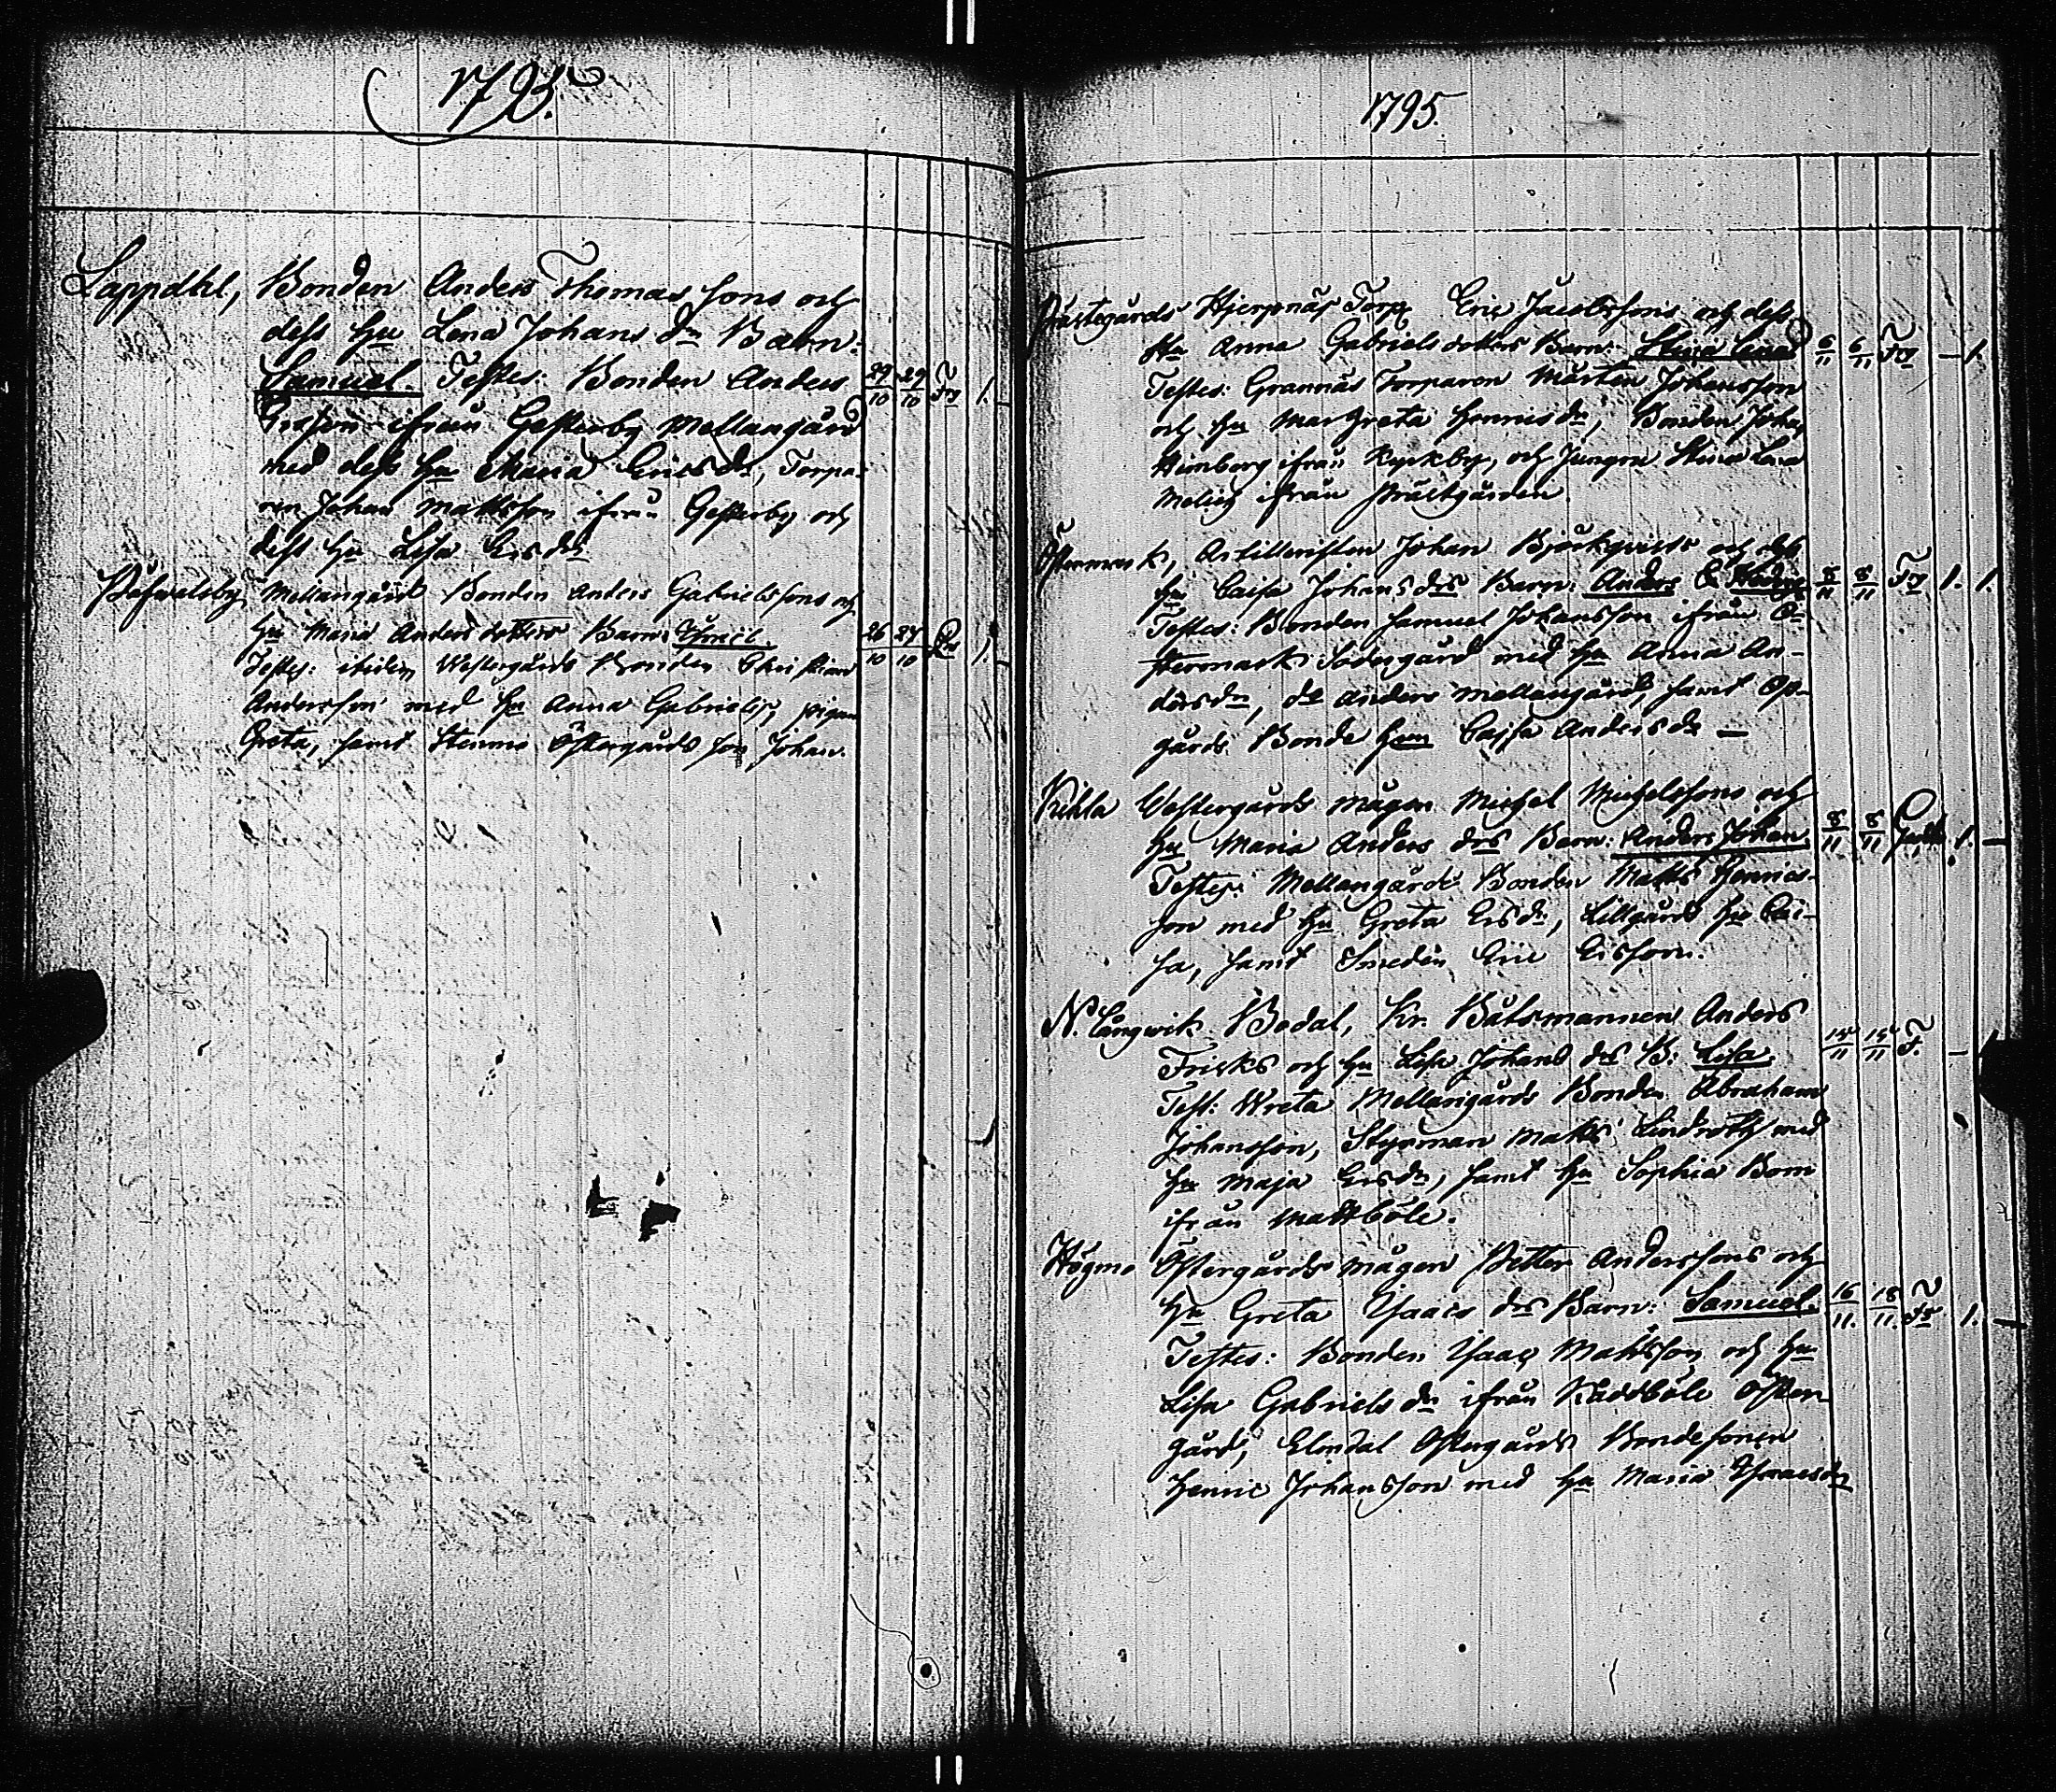 1795.
Lappdhl, Bonden Anders Thomas sons och
dess hu Lena Johans dr Barn:
Samuel. Testes: Bonden Anders 29/10 29/10 Fr 1. –
Ersson ifrån Gesterby Mellangård
med dess hu Maria Ericsdr, Torpa-
ren Johan Mattsson ifrån Gesterby och
dess hu Lisa Ersdr
Mellangård Bonden Anders Gabrielssons och
hu Maria Anders dotters Barn: 26/10 27/10 1. –
Testes: ibidem Westergårds Bonden Christian
Andersson med hu Anna Gabrielsdr, pigan
Greta, samt Östergårds son Johan.
1795.
Prästegårds Hjerpnäs Torp Eric Jacobssons och dess
Hu Anna Gabriels dotters Barn: Stina Lena 6/11 6/11 Fr – 1.
Testes: Grannäs Torparen Mårten Johansson
och hu Margreta Henricsdr, Bonden Johan
Himberg ifrån Kyrkby, och Jungfru Stina Lena
ifrån Prästgården.
Östermark, Artilleristen Johan Björkqvists och dess
hu Caisa Johansdrs Barn: Anders & Hedvig 8/11 8/11 Fr 1. 1.
Testes: Bonden Samuel Johansson ifrån Ö-
stermark Södergård med hu Anna An-
dersdr, do Anders Mellangård, samt Op-
gårds Bonde hu Cajsa Andersdr –
Kihla Westergårds mågen Michel Michelssons och
hu Maria Anders drs Barn: Anders Johan 8/11 8/11 1. –
Testes: Mellangårds Bonden Matts Henrics-
son med hu Greta Ersdr, Lillgårds hu Cai-
sa, samt Smeden Eric Ersson.
N. Långwik Bodal, Kr. Båtsmannen Anders
Fricks och hu Lisa Johans drs B: Lisa 15/11 15/11 F. – 1
Test: Wreta Mellangårds Bonden Abraham
Johansson, Styrman Matts Lindroth med
hu Maja Ersdr, samt hu Sophia Bom
ifrån Mattböle.
Högmo Östergårds mågen Petter Anderssons och
hu Greta Isaacs drs Barn: Samuel. 16/11. 18/11. Fr 1. –
Testes: Bonden Isaac Mattsson och hu
Lisa Gabriels dr ifrån Räddböle Öster-
gård, Elmdal Östergårds Bondesonen
Henric Johansson med hu Maria Isaacsdr